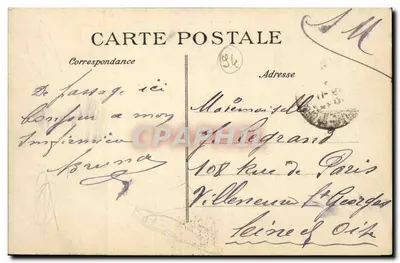 S M
CARTE POSTALE
94
Correspondance
Adresse
De passage ici
bonjour a mon
Bruno
Mademoiselle
J. Legrand
108 Rue de Paris
Villeneuve St Georges
Seine et Oise
CARTE POSTALE